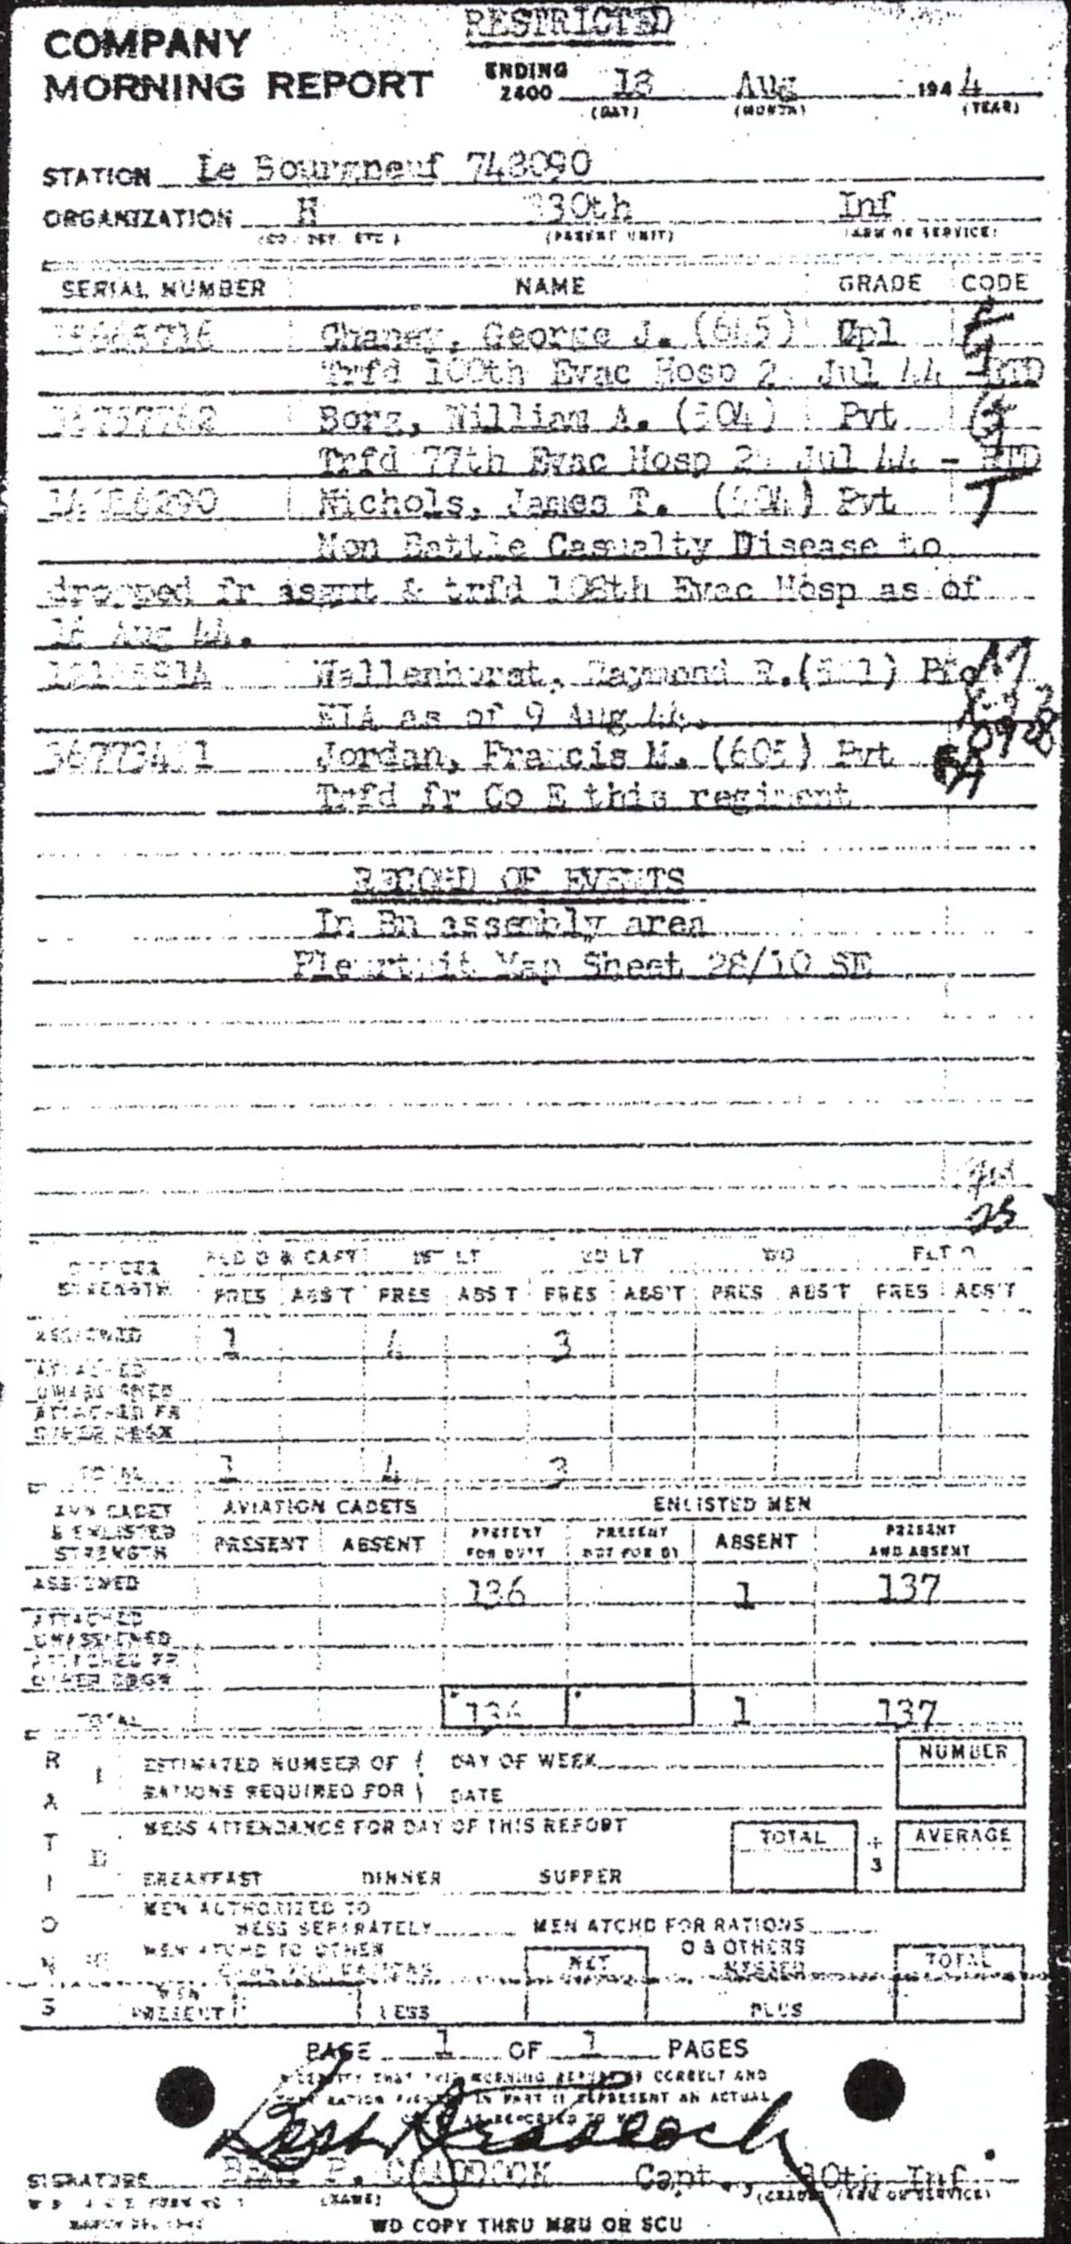 RESTRICTED
COMPANY
MORNING REPORT ENDING 2400 18 Aug 1944
(DAY) (MONTH) (YEAR)
STATION Le Bourgneuf 748090
ORGANIZATION H 330th Inf
(CO., DET., ETC.) (PARENT UNIT) (ARM OR SERVICE)
SERIAL NUMBER NAME GRADE CODE
Chaney, George J. (645) Cpl
Trfd 100th Evac Hosp 2 Jul 44 - RTD
Borz, William A. (504) Pvt
Trfd 77th Evac Hosp 2 Jul 44 - RTD
Nichols, James T. (404) Pvt T
Non Battle Casualty Disease to
dropped fr asgmt & trfd 108th Evac Hosp as of
Aug 44.
Wallenhorst, Raymond R. Pfc
as of 9 Aug 44.
0928
Jordan, Francis M. (605) Pvt
Trfd fr Co E this regiment
RECORD OF EVENTS
In Bn assembly area
Pleurtuit Map Sheet 28/10 SE
25
OFFICER STRENGTH FLD O & CAPT 1ST LT 2D LT WO FLT O
PRES ABS'T PRES ABS'T PRES ABS'T PRES ABS'T PRES ABS'T
ASSIGNED 1 4 3
ATTACHED UNASSIGNED
ATTACHED FR OTHER ORGN
TOTAL 1 4 3
AVN CADET & ENLISTED STRENGTH AVIATION CADETS ENLISTED MEN
PRESENT ABSENT PRESENT FOR DUTY PRESENT NOT FOR DY ABSENT PRESENT AND ABSENT
ASSIGNED 136 1 137
ATTACHED UNASSIGNED
ATTACHED FR OTHER ORGN
TOTAL 136 1 137
RATIONS
ESTIMATED NUMBER OF DAY OF WEEK NUMBER
RATIONS REQUIRED FOR DATE
MESS ATTENDANCE FOR DAY OF THIS REPORT TOTAL ÷ 3 AVERAGE
BREAKFAST DINNER SUPPER
MEN AUTHORIZED TO
MESS SEPARATELY MEN ATCHD FOR RATIONS
MEN ATCHD TO OTHER ORGN FOR RATIONS NET O & OTHERS MESSED TOTAL
MEN PRESENT LESS PLUS
PAGE 1 OF 1 PAGES
I CERTIFY THAT THIS MORNING REPORT IS CORRECT AND
RATION FIGURES IN PART II REPRESENT AN ACTUAL
AS REPORTED TO ME
SIGNATURE P. CRADDOCK Capt., 330th Inf
(NAME) (GRADE) (ARM OR SERVICE)
WD COPY THRU MRU OR SCU